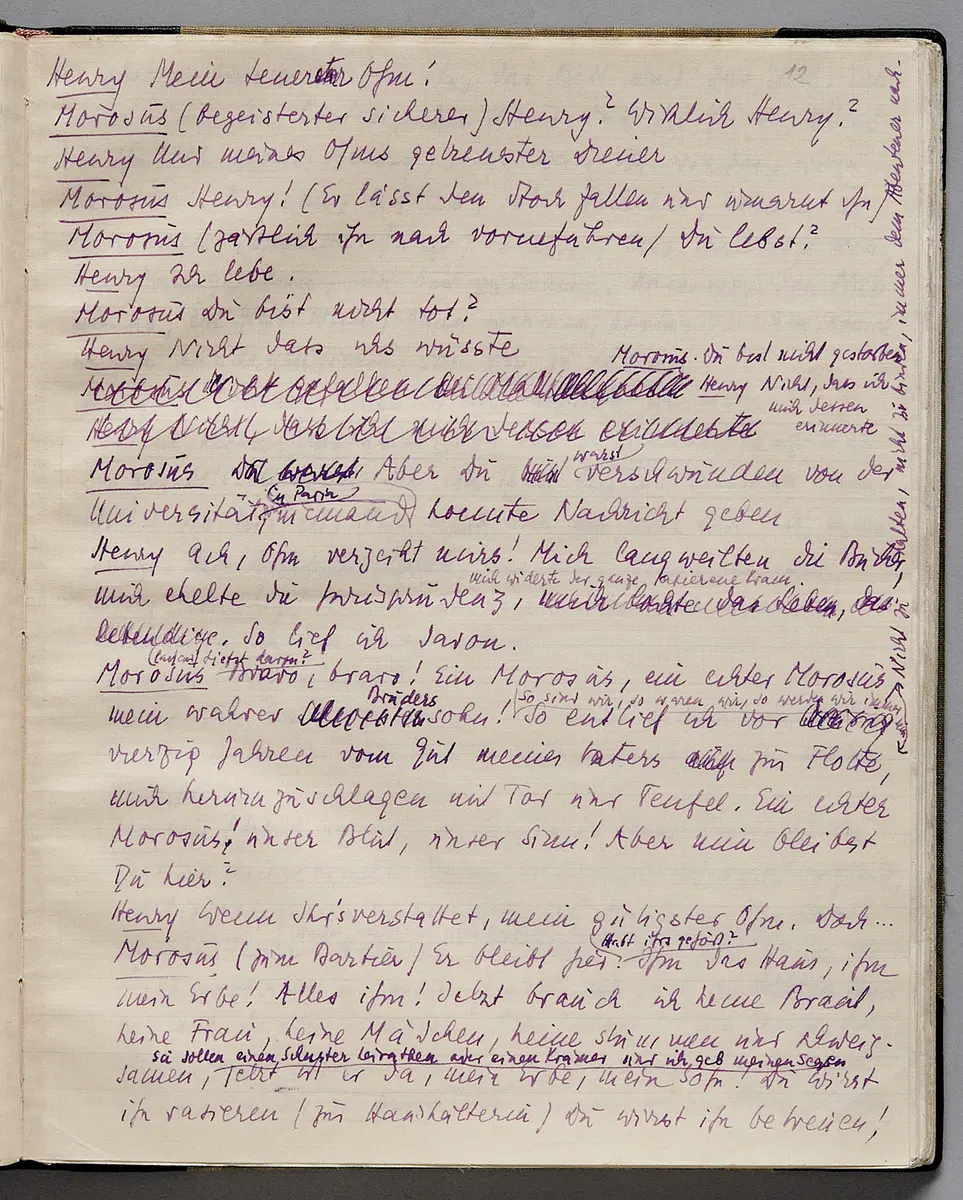 12
Henry Mein teuerster Ohm!
Morosus (begeisterter sicherer) Henry? Wirklich Henry?
Henry Und meines Ohms getreuester Diener
Morosus Henry! (Er lässt den Stock fallen und umarmt ihn)
Morosus (zärtlich ihn nach vorneführen) Du lebst?
Henry Ich lebe.
Morosus Du bist nicht tot?
Henry Nicht dass ichs wüsste
Morosus. Du bist nicht gestorben
Henry Nicht, dass ich
mich dessen
erinnerte
Henry Nicht, dass ich mich dessen erinnerte
warst
Morosus Aber Du verschwunden von der
(in Pavia
Universität, niemand konnte Nachricht geben
Henry Ach, Ohm verzeiht mirs! Mich langweilten die Bücher,
mich widerte der ganze, papierene Kram.
mich ekelte die Jurisprudenz, mich lockte das Leben, das
lebendige. So lief ich davon.
Morosus Bravo, bravo! Ein Morosus, ein echter Morosus,
Bruders
(So sind wir, so waren wir, so werden wir immer
mein wahrer sohn! So entlief ich vor
vierzig Jahren vom Gut meines Vaters zur Flotte,
mich herumzuschlagen mit Tod und Teufel. Ein echter
Morosus! unser Blut, unser Sinn! Aber nun bleibst
Du hier?
Henry Wenn Ihr's verstattet, mein gütigster Ohm. Doch...
(Habt ihrs gehört?
Morosus (zum Barbier) Er bleibt hier. Ihm das Haus, ihm
mein Erbe! Alles ihm! Jetzt brauch ich keine Braut,
keine Frau, keine Mädchen, keine stummen und schweig-
sie sollen einen Schuster heirathen oder einen Krämer und ich geb meinen Segen
samen, jetzt ist er da, mein Erbe, mein Sohn! Du wirst
ihn rasieren (zur Haushälterin) Du wirst ihn betreuen!
Nicht zu halten, nicht zu binden, immer dem Abenteuer nach.